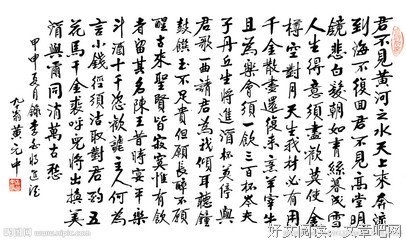 君不見黄河之水天上来奔流
到海不復回君不見高堂明
鏡悲白髮朝如青絲暮成雪
人生得意須盡歡莫使金
樽空對月天生我材必有用
千金散盡還復来烹羊宰牛
且為樂會須一飲三百杯岑夫
子丹丘生将進酒杯莫停與
君歌一曲請君為我傾耳聽鐘
鼓饌玉不足貴但願長醉不願
醒古来聖賢皆寂寞惟有飲
者留其名陳王昔時宴平樂
斗酒十千恣歡謔主人何為
言少錢徑須沽取對君酌五
花馬千金裘呼兒将出換美
酒與爾同消萬古愁
甲申夏月錄李白将進酒
黄元中
好文阅读-文章吧网